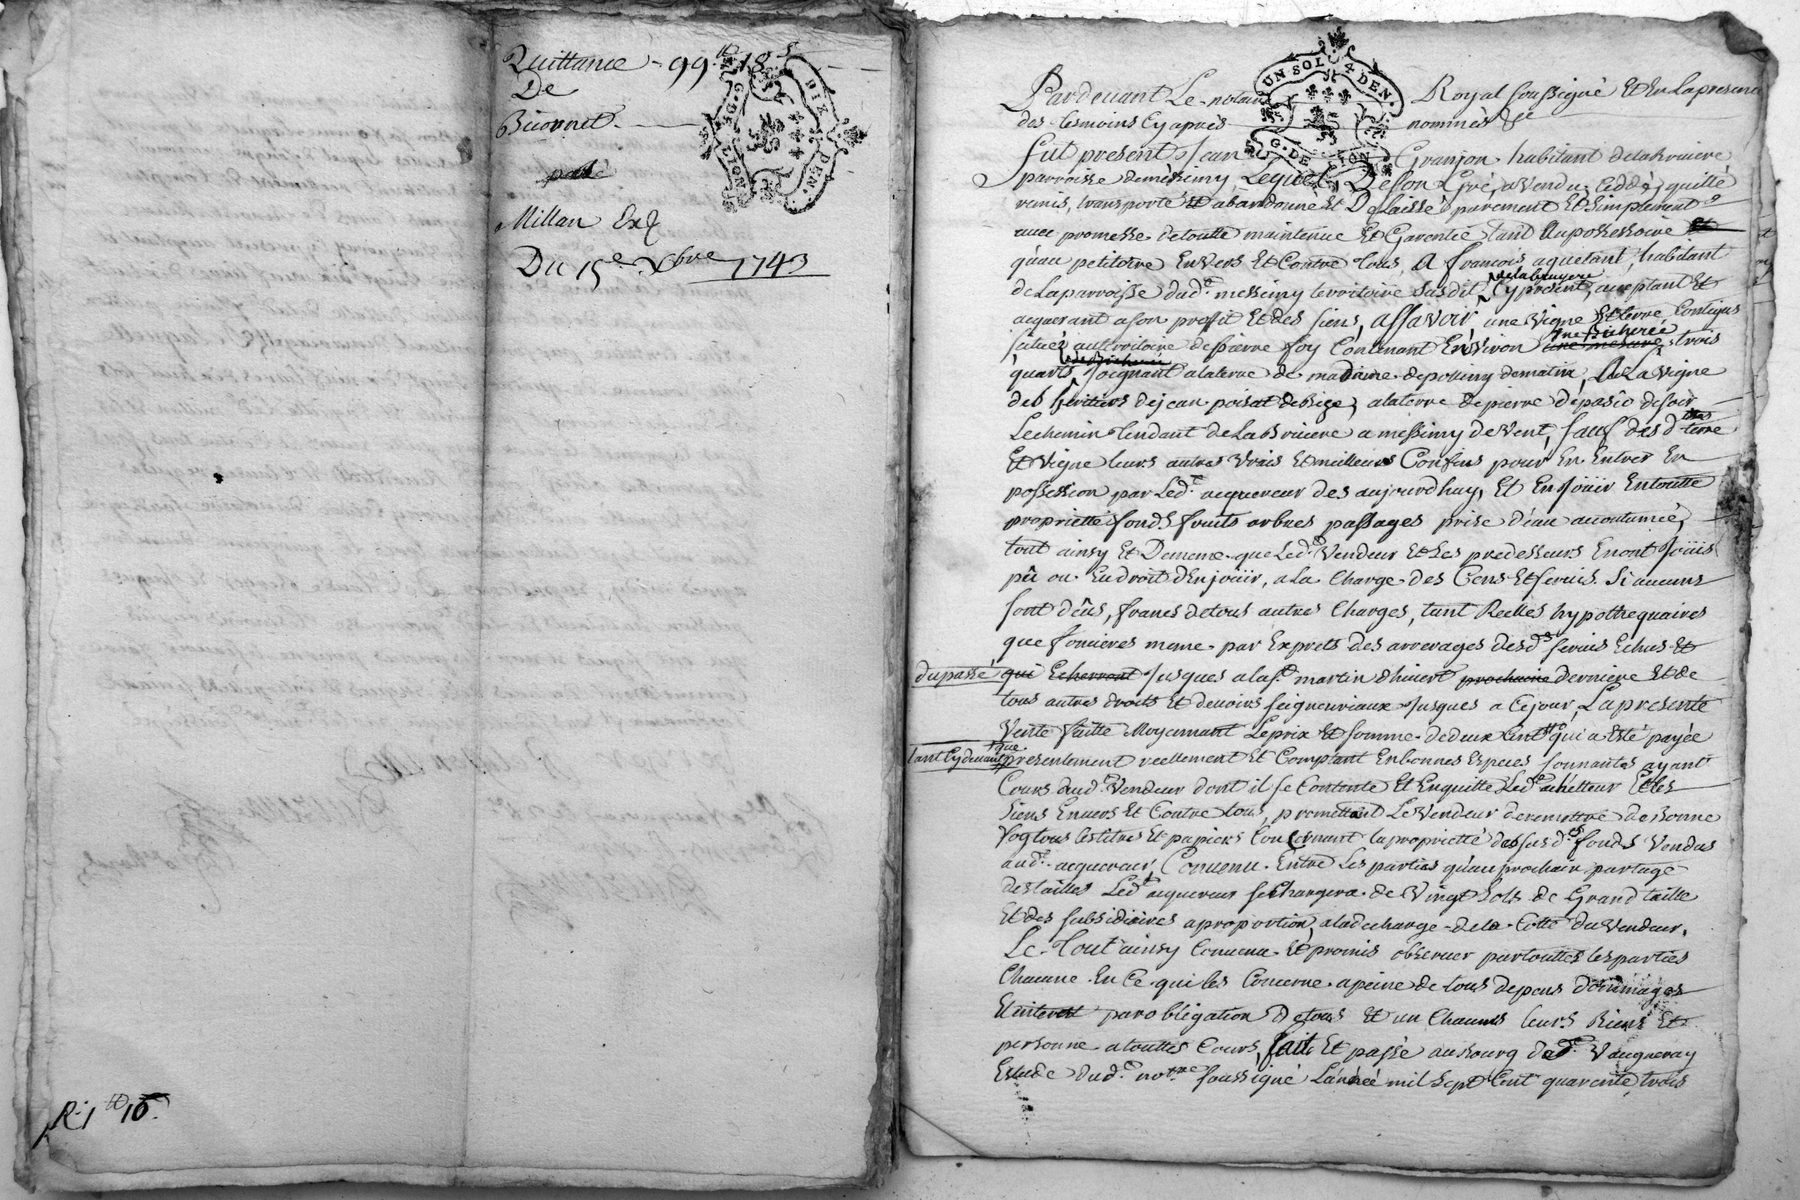 Quittance - 99ᵗᵗ 18ˢ
De
Biconnet
Millan Exp
Du 15ᵉ Xbre 1743
DIX DEN.
G. DE LION
R. 1ᵗᵗ 10ˢ
UN SOL 4 DEN.
G. DE LION
Pardevant Le notaire Royal soussigné Et En La presence
des tesmoins Cy apres nommés
fut present Jean Granjon habitant de la bruiere
parroisse de messimy, Lequel De son Gré a vendu, Ceddé, quitté
remis, transporté Et abandonné Et Delaissé purement Et simplement
avec promesse de toutte maintenue Et Garentie tant Au possessoire Et
qu'au petitoire Envers Et Contre tous, A francois aquetant, habitant
de La parroisse dud. messimy territoire susdit, de la bruyere Cy present, acceptant Et
acquerant a son profit Et des siens, assavoir une vigne Et terre Contigus
situéz au territoire de pierre foy Contenant Environ une mesure une Bicherée trois
quarts de Bicherée Joignant a la terre de madame de pollimy de matin, A La vigne
des heritiers de jean poisat de bize, a la terre de pierre depasio de soir
Le chemin tendant de La bruiere a messimy de vent, sauf desd. terre
Et vigne leurs autres vrais Et meilleurs Confins pour En Entrer En
possession par Led. acquereur des aujourdhuy, Et En Joüir En toutte
proprietté fonds fruits arbres passages prise d'eau accoutumée,
tout ainsy Et De meme que Led. Vendeur Et Ses predesseurs En ont Joüis
pû ou Eu droit d'En joüir, a La Charge des Cens Et servis Si aucuns
sont dûs, francs de tous autres Charges, tant Reelles hypothequaires
que foncieres meme par Exprets des arrerages desd. servis Echus Et
du passé qui Echerront Jusques a la st. martin d'hivert prochaine derniere Et de
tous autres droits Et devoirs seigneuriaux Jusques a Ce jour, La presente
Vente faitte Moyennant Le prix Et somme de deux Cent ᵗᵗ qui a Eté payée
tant Cy devant que presentement reellement Et Comptant En bonnes Especes sonnantes ayant
Cours aud. Vendeur dont il se Contente Et En quitte Led. achetteur Et les
siens Envers Et Contre tous, promettant Le Vendeur de remettre de bonne
foy tous les titres Et papiers Concernant la proprietté des susd. fonds Vendus
aud. acquereur, Convenu Entre Les parties qu'au prochain partage
des tailles Led. acquereur se Chargera de Vingt Sols de Grand taille
Et des subsidiaires a proportion, a la decharge de la Cotte du Vendeur,
Le Tout ainsy Convenu Et promis observer par touttes les parties
Chacune En Ce qui les Concerne a peine de tous depens dommages
Et interest par obligation De tous Et un Chacuns leurs Biens Et
personne a touttes Cours, fait Et passé au bourg de Vaugneray
Etude dud. notre soussigné L'année mil Sept Cent quarente, trois